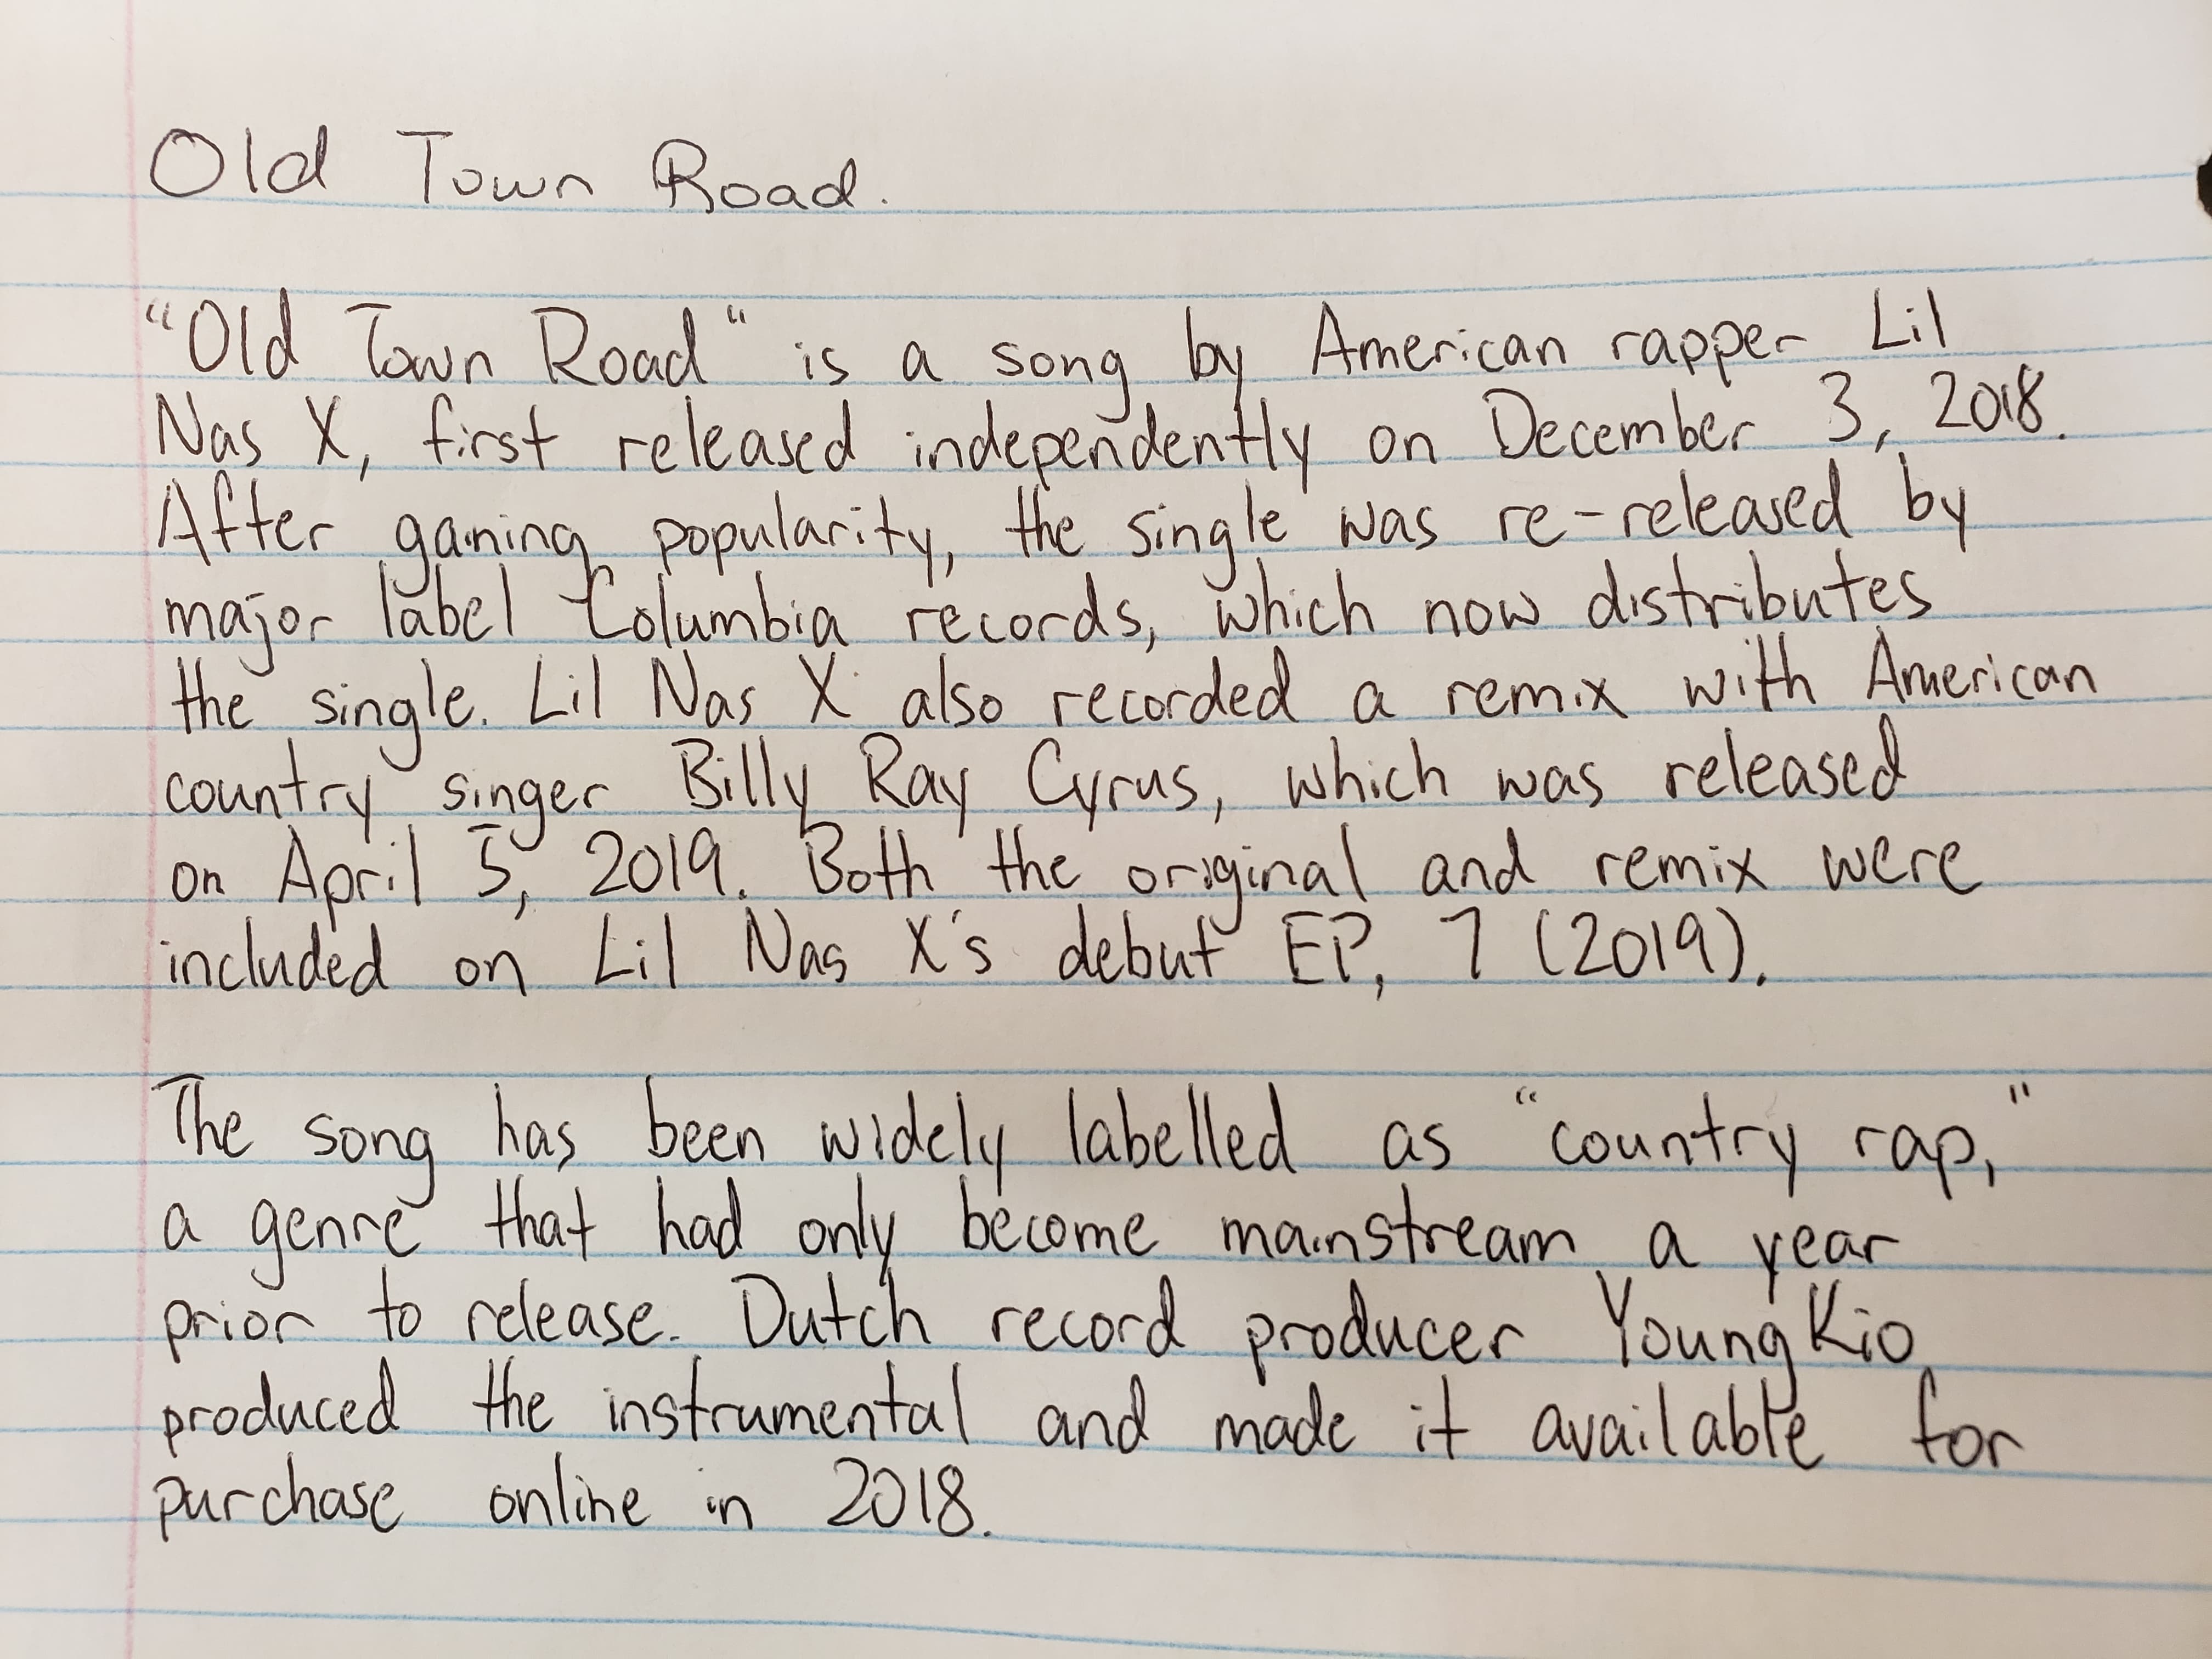 Old Town Road.
"Old Town Road" is a song by American rapper Lil
Nas X, first released independently on December 3, 2018.
After gaining popularity, the single was re-released by
major label Columbia records, which now distributes
the single. Lil Nas X also recorded a remix with American
country singer Billy Ray Cyrus, which was released
on April 5, 2019. Both the original and remix were
included on Lil Nas X's debut EP, 7 (2019).
The song has been widely labelled as "country rap,"
a genre that had only become mainstream a year
prior to release. Dutch record producer YoungKio
produced the instrumental and made it available for
purchase online in 2018.